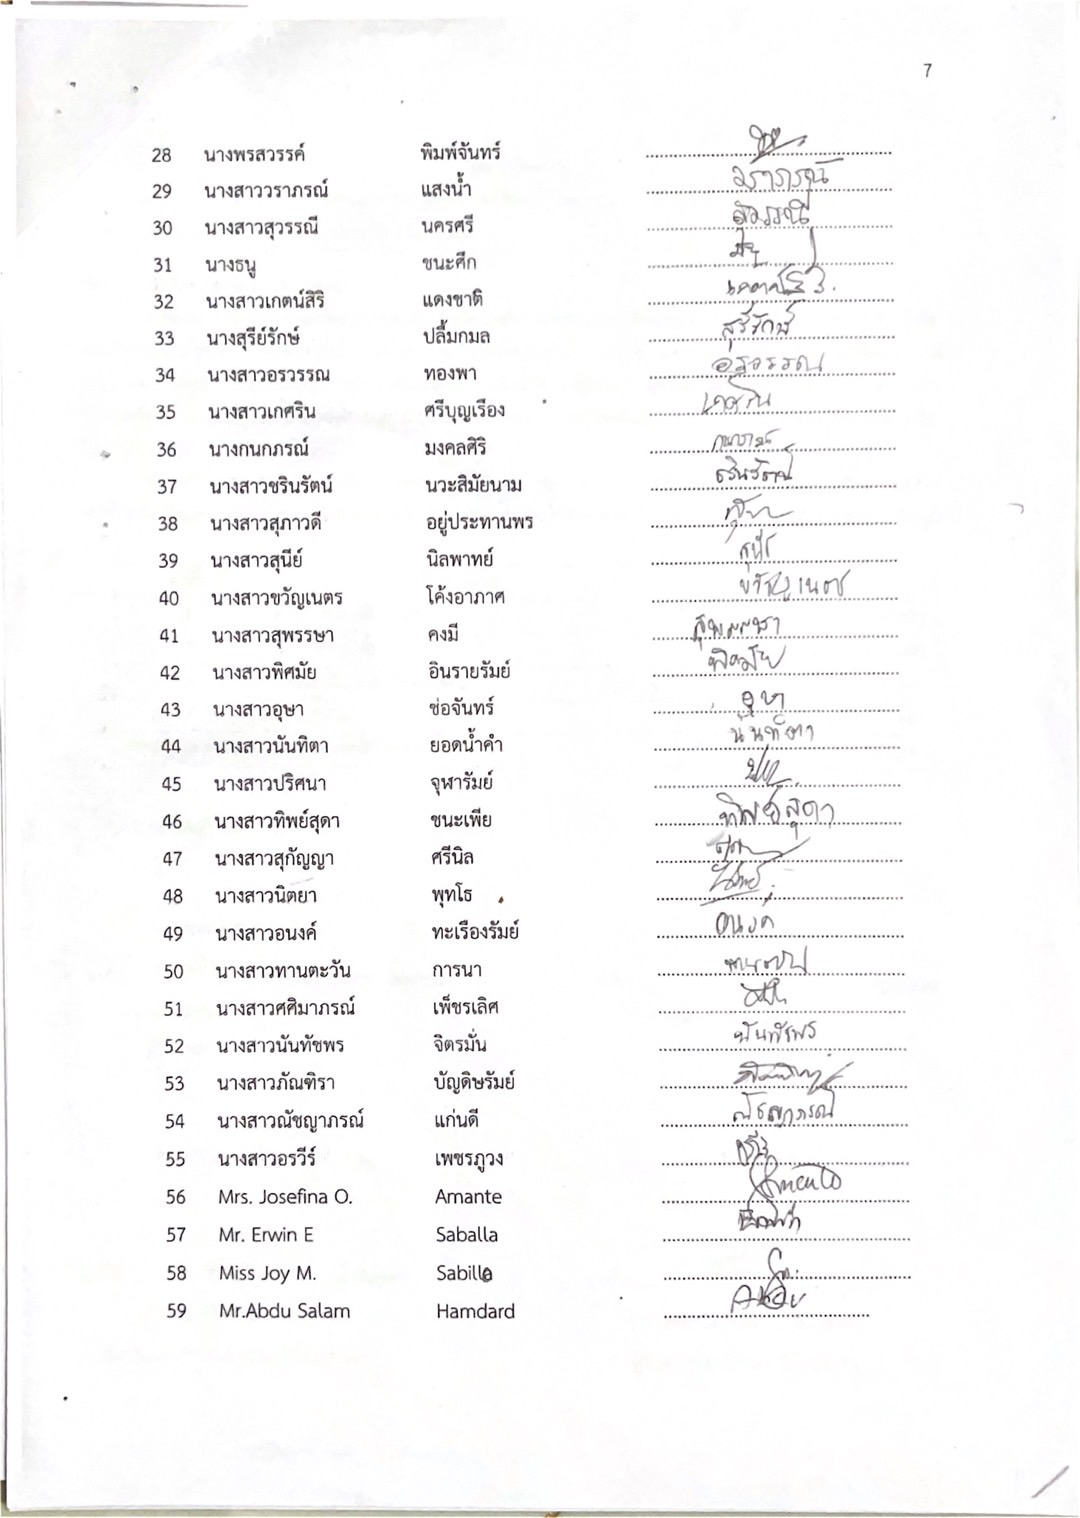 7
28 นางพรสวรรค์ พิมพ์จันทร์
29 นางสาววราภรณ์ แสงน้ำ วราภรณ์
30 นางสาวสุวรรณี นครศรี สุวรรณี
31 นางธนู ชนะศึก
32 นางสาวเกตน์สิริ แดงชาติ
33 นางสุรีย์รักษ์ ปลื้มกมล สุรีรักษ์
34 นางสาวอรวรรณ ทองพา อรวรรณ
35 นางสาวเกศริน ศรีบุญเรือง เกศริน
36 นางกนกภรณ์ มงคลศิริ
37 นางสาวชรินรัตน์ นวะสิมัยนาม ชรินรัตน์
38 นางสาวสุภาวดี อยู่ประทานพร
39 นางสาวสุนีย์ นิลพาทย์
40 นางสาวขวัญเนตร โค้งอาภาศ ขวัญเนตร
41 นางสาวสุพรรษา คงมี สุพรรษา
42 นางสาวพิศมัย อินรายรัมย์ พิศมัย
43 นางสาวอุษา ช่อจันทร์ อุษา
44 นางสาวนันทิตา ยอดน้ำคำ นันทิตา
45 นางสาวปริศนา จุฬารัมย์
46 นางสาวทิพย์สุดา ชนะเพีย ทิพย์สุดา
47 นางสาวสุกัญญา ศรีนิล
48 นางสาวนิตยา พุทโธ
49 นางสาวอนงค์ ทะเรืองรัมย์ อนงค์
50 นางสาวทานตะวัน การนา
51 นางสาวศศิมาภรณ์ เพ็ชรเลิศ
52 นางสาวนันทัชพร จิตรมั่น นันทัชพร
53 นางสาวภัณฑิรา บัญดิษรัมย์
54 นางสาวณัชญาภรณ์ แก่นดี ณัชญาภรณ์
55 นางสาวอรวีร์ เพชรภูวง
56 Mrs. Josefina O. Amante
57 Mr. Erwin E Saballa
58 Miss Joy M. Sabilla
59 Mr.Abdu Salam Hamdard